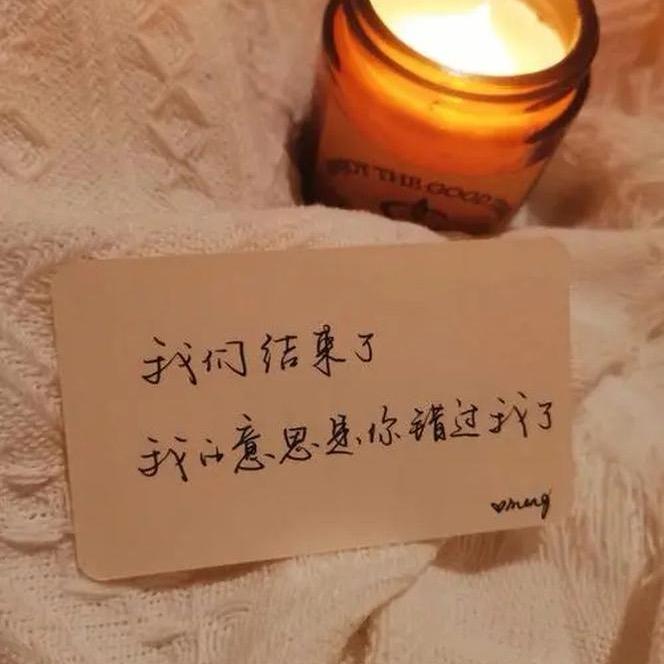 THE GOOD
我们结束了
我的意思是你错过我了
♡meng